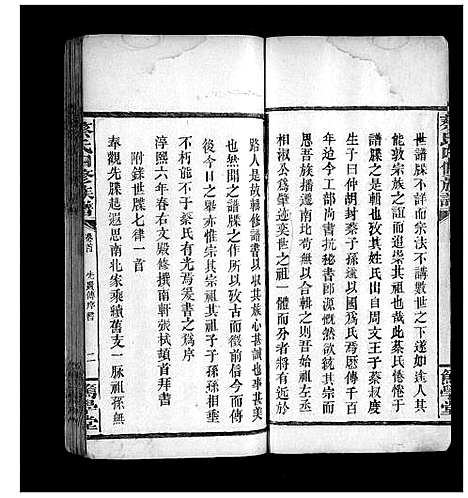 蔡氏四修族譜
世譜牒不講而宗法不講數世之下遂如途人其
能敦宗族之誼而追崇其祖也哉此蔡氏倦倦于
譜牒之是為也攷其姓氏出自文王子蔡叔度
生子曰仲胡封蔡子孫遂以國為氏焉歷傳千百
年迨今工部尚書抗秘書郎源慨然欲統其宗
思吾族播遷南北苟無以合輯之則吾始祖左丞
相淑公為肇迹奕世之祖一體而分將有近於
篤學堂
路人是故輯修譜書以収其族心甚誠也事甚美
也然間之譜牒之作所以攷古而徵前信今而傳
後今日之舉亦惟宗其宗祖其祖子子孫孫相垂
不朽能不于蔡氏有光焉爰書為序
淳熙六年春右文殿修撰南軒張栻頡首拜書
附錄世牒七律一首
奉觀先牒起遐思南北家乘續舊支一脉祖孫無
蔡氏四修族譜
卷首
二
篤學堂